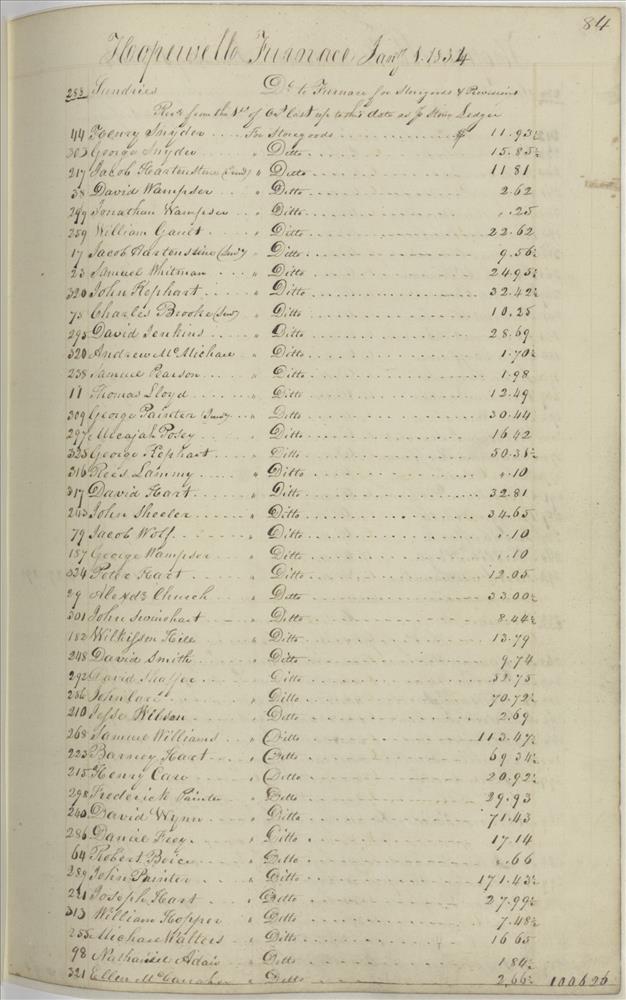 84
Hopewell Furnace Jany 1. 1834
288 Sundries Dr. to Furnace for Storegoods & Provisions
Recd. from the 1st of Oct. last up to this date as pr Store Ledger
44 Henry Snyder .... For Storegoods .... $ 11.93½
303 George Snyder " Ditto .... 15.85½
217 Jacob Hartenstine " Ditto .... 11 81
38 David Wampser .... " Ditto .... 2.62
299 Jonathan Wampser .. " Ditto .... ".25
259 William Gault .... " Ditto .... 22.62
17 Jacob Hartenstine (Junr) " Ditto .... 9.56½
23 Samuel Whitman .... " Ditto .... 24.95½
320 John Kephart .... " Ditto .... 32.42½
75 Charles Brooke " Ditto .... 10.25
295 David Jenkins .... " Ditto .... 28.69
320 Andrew McMichael " Ditto .... 1.70½
238 Samuel Pearson .... " Ditto .... 1.98
11 Thomas Lloyd .... " Ditto .... 12.49
309 George Painter (Junr) .. " Ditto .... 30.44
297 Micajah Posey .... " Ditto .... 16 42
George Kephart .... " Ditto .... 50.38½
316 Rees Lammy .... " Ditto .... ".10
317 David Hart .... " Ditto .... 32.81
243 John Sheeler .... " Ditto .... 34.65
79 Jacob Wolf .... " Ditto .... ".10
187 George Wampser .. " Ditto .... ".10
324 Peter Hart .... " Ditto .... 12.05
29 Alexdr Church .... " Ditto .... 33.00½
301 John Swinehart .... " Ditto .... 8.44½
182 Wilkisson Hill " Ditto .... 13.79
248 David Smith .... " Ditto .... 9.74
292 David Shaffer .... " Ditto .... 32.75
236 John Care .... " Ditto .... 70.72½
210 Jesse Wilson .... " Ditto .... 2.69
268 Samuel Williams .. " Ditto .... 113.47½
223 Barney Hart .... " Ditto .... 69 34½
215 Henry Care .... " Ditto .... 20.92½
298 Frederick Painter " Ditto .... 29.93
240 David Wynn .... " Ditto .... 71.43
286 Daniel " Ditto .... 17.14
64 Robert Boice .... " Ditto .... ".66
289 John Painter .... " Ditto .... 171.43½
221 Joseph Hart .... " Ditto .... 27.99½
313 William Hopper .... " Ditto .... 7.48½
255 Michael Walters .. " Ditto .... 16 65
98 Nathaniel Adair .. " Ditto .... 1 84½
321 Ellen " Ditto .... 2,66½ 1006 26